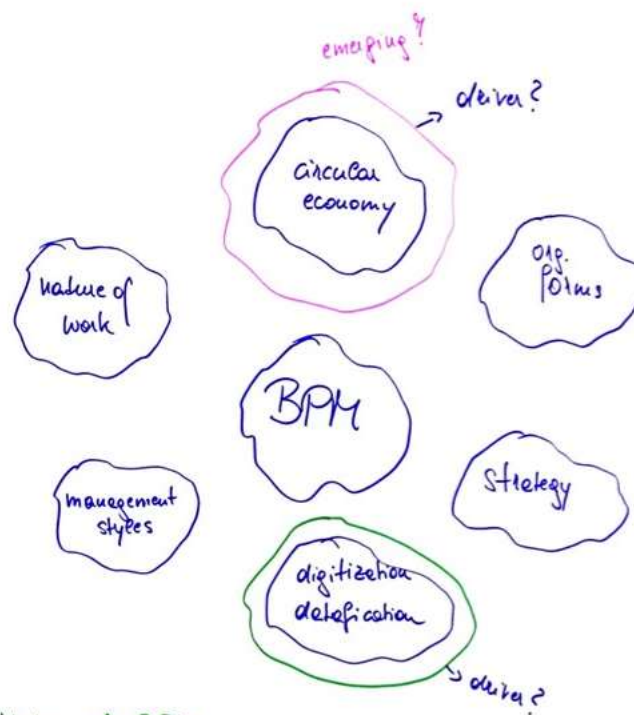 emerging?
driver?
circular
economy
org.
forms
nature of
work
BPM
strategy
management
styles
digitization
datafication
driver?